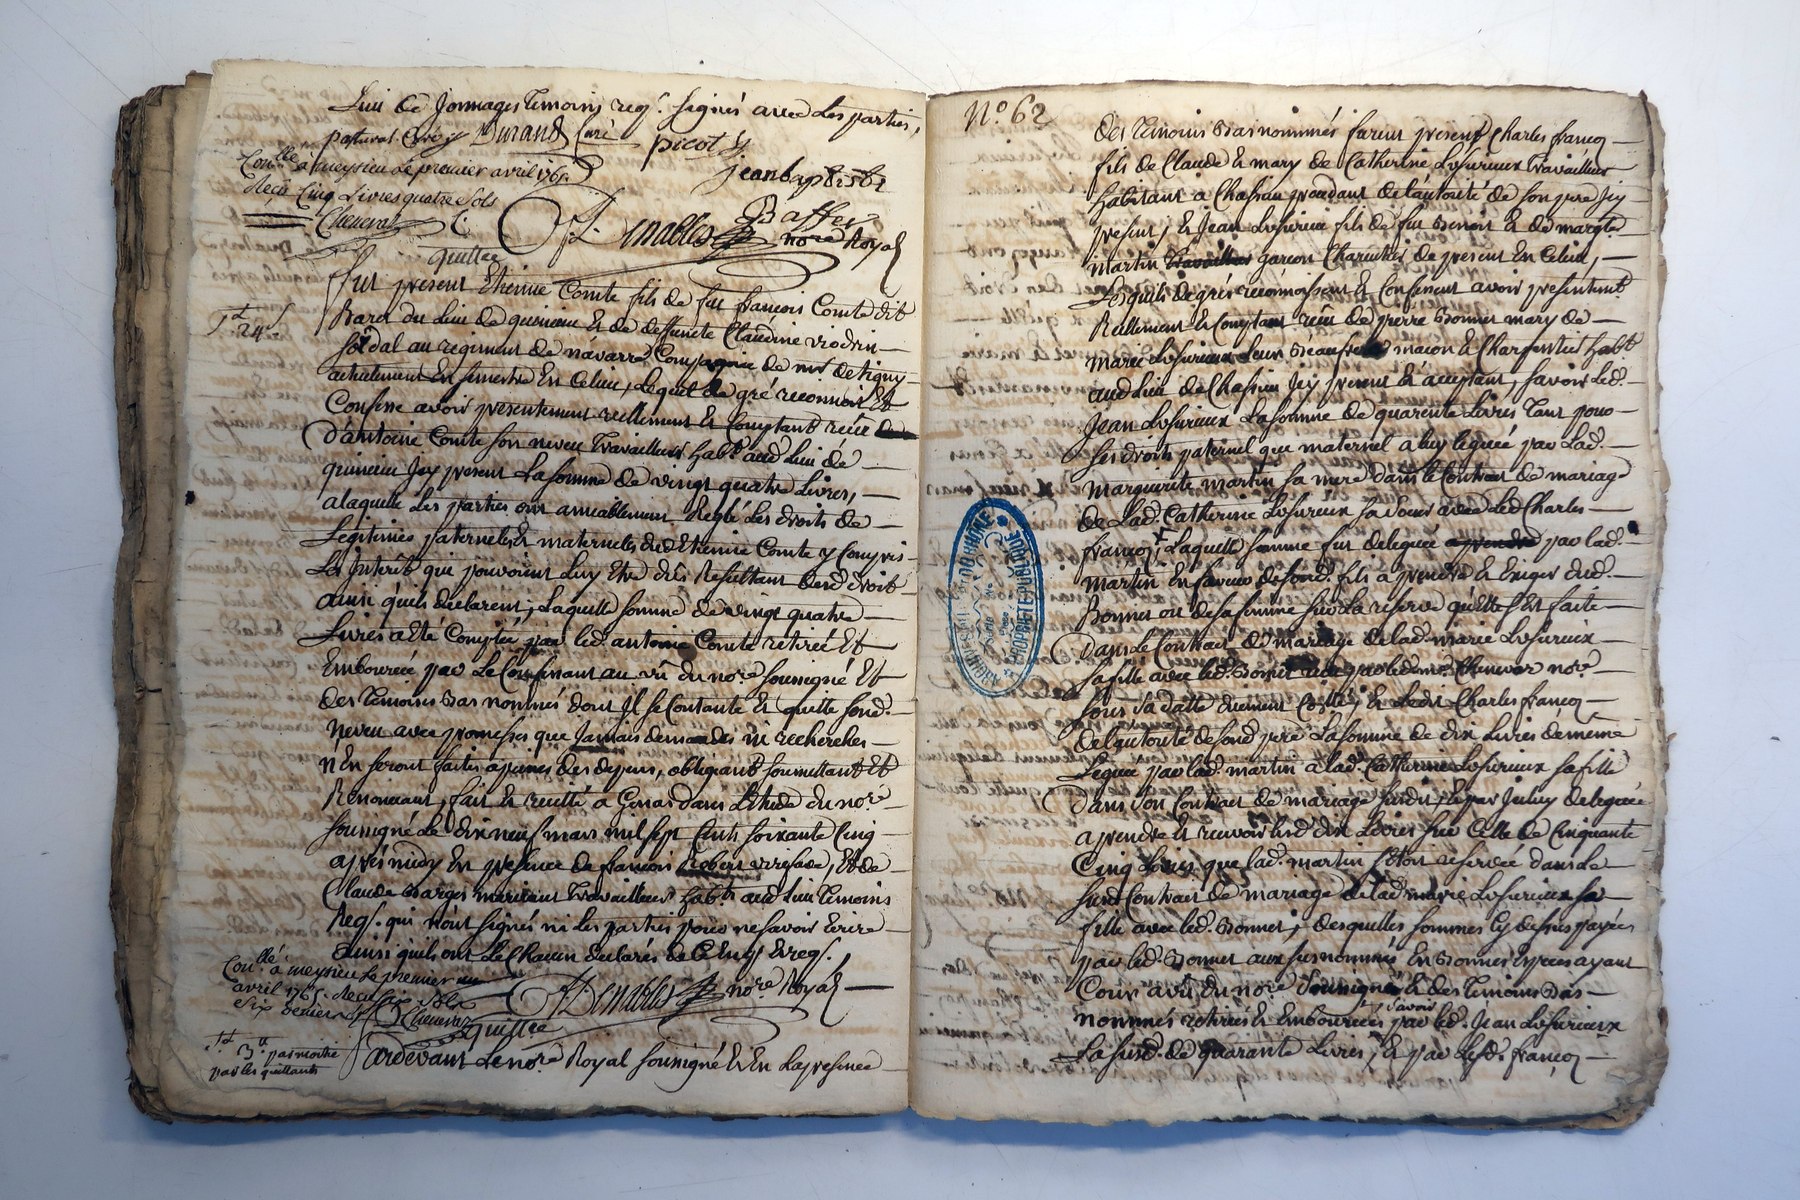 Lieu de Jonnages temoins req.s signés avec les parties,
Durand Curé
picot
jeanbaptiste
Baffer
Conllé a meysieu le premier avril 1765
Reçu Cinq Livres quatre sols
Chenevat
Demables nore Royal
quittce
Fut present Etienne Comte fils de feu francois Comte dit
Bara du Lieu de quincieu et de deffuncte Claudine viodrin
soldal au regiment de navarre Compagnie de mr de tigny
actuelement En semestre En Celieu, Lequel de gré reconnoit Et
Confesse avoir presentement reellement et Comptant reçu
d'antoine Comte son neveu travailleur habt aud Lieu de
quincieu Jcy present La somme de vingt quatre Livres,
a laquelle Les parties ont amiablement Reglé Les droits de
Legitimes paternels et maternels dud Etienne Comte y Compris
Les Interêts qui pouvoient Luy Etre dûs Resultant desd droits
ainsi qu'ils declarent, Laquelle somme de vingt quatre
Livres a Eté Comptée par led. antoine Comte retirée Et
Emboursée par Le Confessant au vû du nore soussigné Et
des temoins Bas nommés dont Jl se Contante et quitte sond.
Neveu avec promesses que Jamais demandes ni recherches
n'En seront faites a peines des depens, obligeant soumettant Et
Renonceant, fait et recitté a Genas dans L'Etude du nore
soussigné Le dix neuf mars mil sept Cents soixante Cinq
après midy En presence de francois Robert et de
Claude Barges travailleurs habts aud Lieu temoins
Reqs. qui n'ont signés ni les parties pour ne savoir Ecrire
ainsi qu'ils ont Le Chacun declarés de Ce Enquis et reqs.
Conllé a meysieu Le premier
avril 1765. Reçu
six deniers
Chenevat
Demables nore Royal
quittce
3ll par moitié
par les quittants
Pardevant Le nore Royal soussigné et En La presence
No. 62
des temoins Bas nommés furent presents Charles francoz
fils de Claude et mary de Catherine Lesurieux travailleur
habitant a Chassieu procedant de L'autorité de son pere Jcy
present, et Jean Lesurieux fils de feu Benoit et de margte
martin travailleur garcon Charcutier de present En Celieu,
Lesquels de gré reconnoissent et Confessent avoir presentemt
Reellement et Comptant reçu de pierre Bonnet mary de
marie Lesurieux Leur Beaufrere macon et Charpentier habt
aud Lieu de Chassieu Jcy present et acceptant, savoir Led.
Jean Lesurieux La somme de quarente Livres tant pour
ses droits paternel que maternel a luy leguée par Lad.
Marguerite martin sa mere dans le Contrat de mariage
de Lad. Catherine Lesurieux sa soeur avec Led Charles
francoz, Laquelle somme fut deleguée a prendre par lad.
martin En faveur de sond. fils a prendre et Exiger dud.
Bonnet ou de sa femme sur La reserve qu'Elle s'Est faite
Dans Le Contrat de mariage de lad. marie Lesurieux
sa fille avec led. Bonnet me Chenevat nore
sous sa datte et Ledit Charles francoz
de L'autorité de sond. pere La somme de dix Livres de même
Leguée par lad. martin a lad. Catherine Lesurieux sa fille
dans son Contrat de mariage susdit, deleguée
a prendre et recevoir lesd dix Livres sur Celle de Cinquante
Cinq Livres que lad. martin s'Etoit reservée dans le
susd Contrat de mariage de lad marie Lesurieux sa
fille avec led. Bonnet, desquelles sommes Cy dessus payées
par led. Bonnet aux susnommés En Bonnes Especes ayant
Cour au vû du nore soussigné et des temoins Bas
nommés retirées et Emboursées savoir par led. Jean Lesurieux
La susd. de quarante Livres, et par Lesd. francoz
ARCHIVES DEP. DU RHONE
PROPRIETE PUBLIQUE